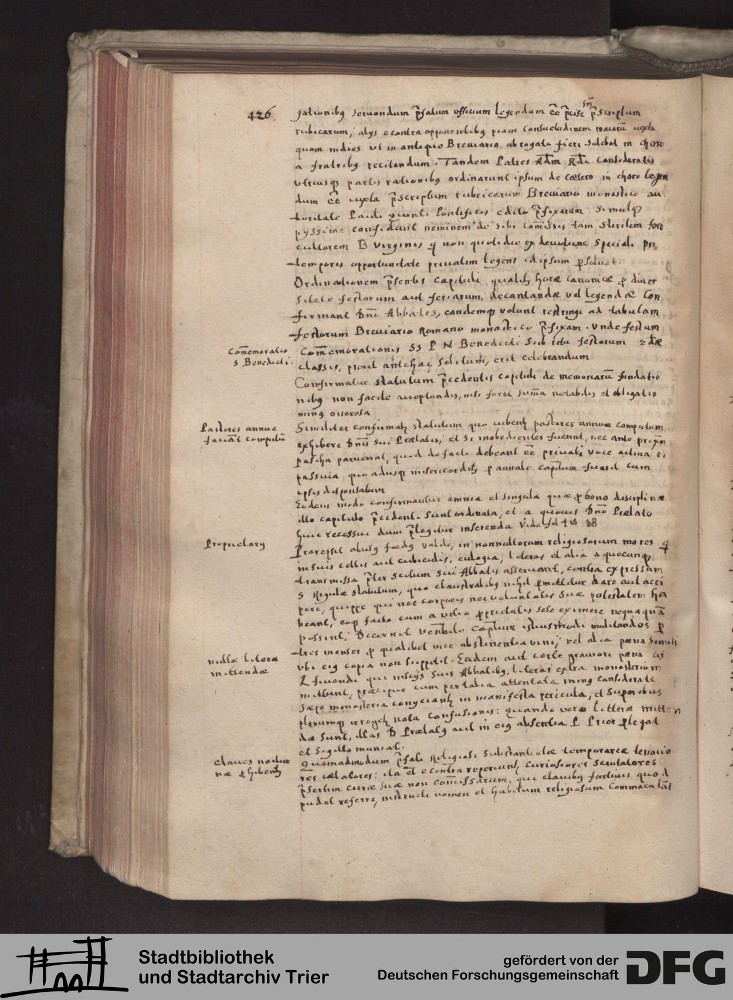 426
gationibus servandum p̄fatum officium legendum ēē p̄cise sm̄ p̄scriptum
rubricarum, alijs econtra opponentibus piam consuetudinem maiorū iuxta
quam nudius vt in antiquo Breviario abrogato fieri solebat in choro
a fratribus recitandum. Tandem Patres Adm̄ Rdi consideratis
utriusque partis rationibus ordinarunt ipsum de cætero in choro legen
dum ēē iuxta p̄scriptum rubricarum Breviario monastico au
toritate Pauli quinti Pontificis edito p̄fixarum. Simulque
pyssime considerunt neminem de sibi comissis tam sterilem fore
cultorem B Virginis qui non quotidie ex devotione speciali pro
temporis opportunitate privatim legens id ipsum psolvat.
Ordinationem p̄sentis capituli qualiter horæ canonicæ pro diver
sitate festorum aut feriarum, decantandæ vel legendæ con
firmant Dn̄i Abbates, eandemque volunt restringi ad tabulam
festorum Breviario Romano monastico p̄fixam. Unde festum
Com̄emoratio
S Benedicti.
Com̄emorationis SS P N Benedicti sub ritu festorum 2dæ
classis, prout antehac solitum, erit celebrandum
Confirmatur statutum p̄cedentis capituli de memoriarū fundatio
nibus non facile acceptandis, nisi foret sum̄a notabilis et obligatio
minus onerosa
Pastores annue
faciāt computū
Similiter confirmatur statutum quo iubentur pastores annue computum
exhibere Dn̄is suis Prælatis, et si inobedientes fuerint, nec ante proxim
pascha paruerint, quod de facto debeant ēē privati voce activa et
passiva, quoadusque misericorditer p annale capitulum fuerit cum
ipsis dispensatum
Eodem modo confirmantur omnia et singula quæ p bono disciplinæ
illo capitulo p̄cedenti sunt ordinata, et a quovis Dn̄o Prælato
huic recessui dum p̄legitur inserenda Vide fol 418
Proprietary
Processit abusus fœdus valde, in nonnullorum religiosorum mores qui
in suis cellis aut cubiculis, eulogia, literas et alia a quocunque
transmissa p̄ter scitum sui Abbatis asservant, contra expressum
S Regulæ statutum, quo claustralibus nihil p̄mittitur dare aut acci
pere, quippe qui nec corporis nec voluntatis suæ potestatem ha
beant, eoque facto cum a vitio p̄prietatis sese eximere nequaquā
possint, decernit venbile Capitulum istiusmodi mulctandos p
tres menses p qualibet vice abstinentia vini, vel alia pœna simili
nullæ literæ
mittendæ
vbi eius copia non suppetit. Eadem aut certe graviori pœna
qui inscys suis Abbatibus, literas extra monasterium
mittunt, præcipue cum per talia attentata minus considerate
sæpe monasteria conyciantur in manifesta pericula, et superibus
plerumque irrogetur nota confusionis: quando vero litteræ mitten
dæ sunt, illas D Prælatus aut in eius absentia P. Prior p̄legat
et sigillo muniat.
claves noctur
næ phibentur
Quemadmodum p̄fati Religiosi substantiolæ temporareæ tenacio
res celatores: ita et econtra reperiuntur curiosiores scrutatores
p̄sertim curæ suæ non com̄issarum, qui clavibus furtivis quod
pudet referre, instructi nomen et habitum religiosum commaculāt
Stadtbibliothek
und Stadtarchiv Trier
gefördert von der
Deutschen Forschungsgemeinschaft
DFG